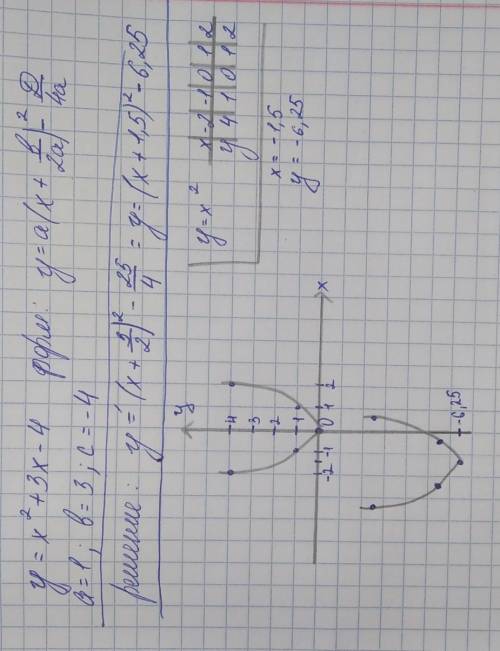 y = x² + 3x - 4 форм: y = a(x + b/2a)² - D/4a
a = 1; b = 3; c = -4
решение: y = (x + 3/2)² - 25/4 = y = (x + 1,5)² - 6,25
y = x²
x -2 -1 0 1 2
y 4 1 0 1 2
x = -1,5
y = -6,25
y
4
3
2
1
-2 -1 0 1 2 x
-6,25